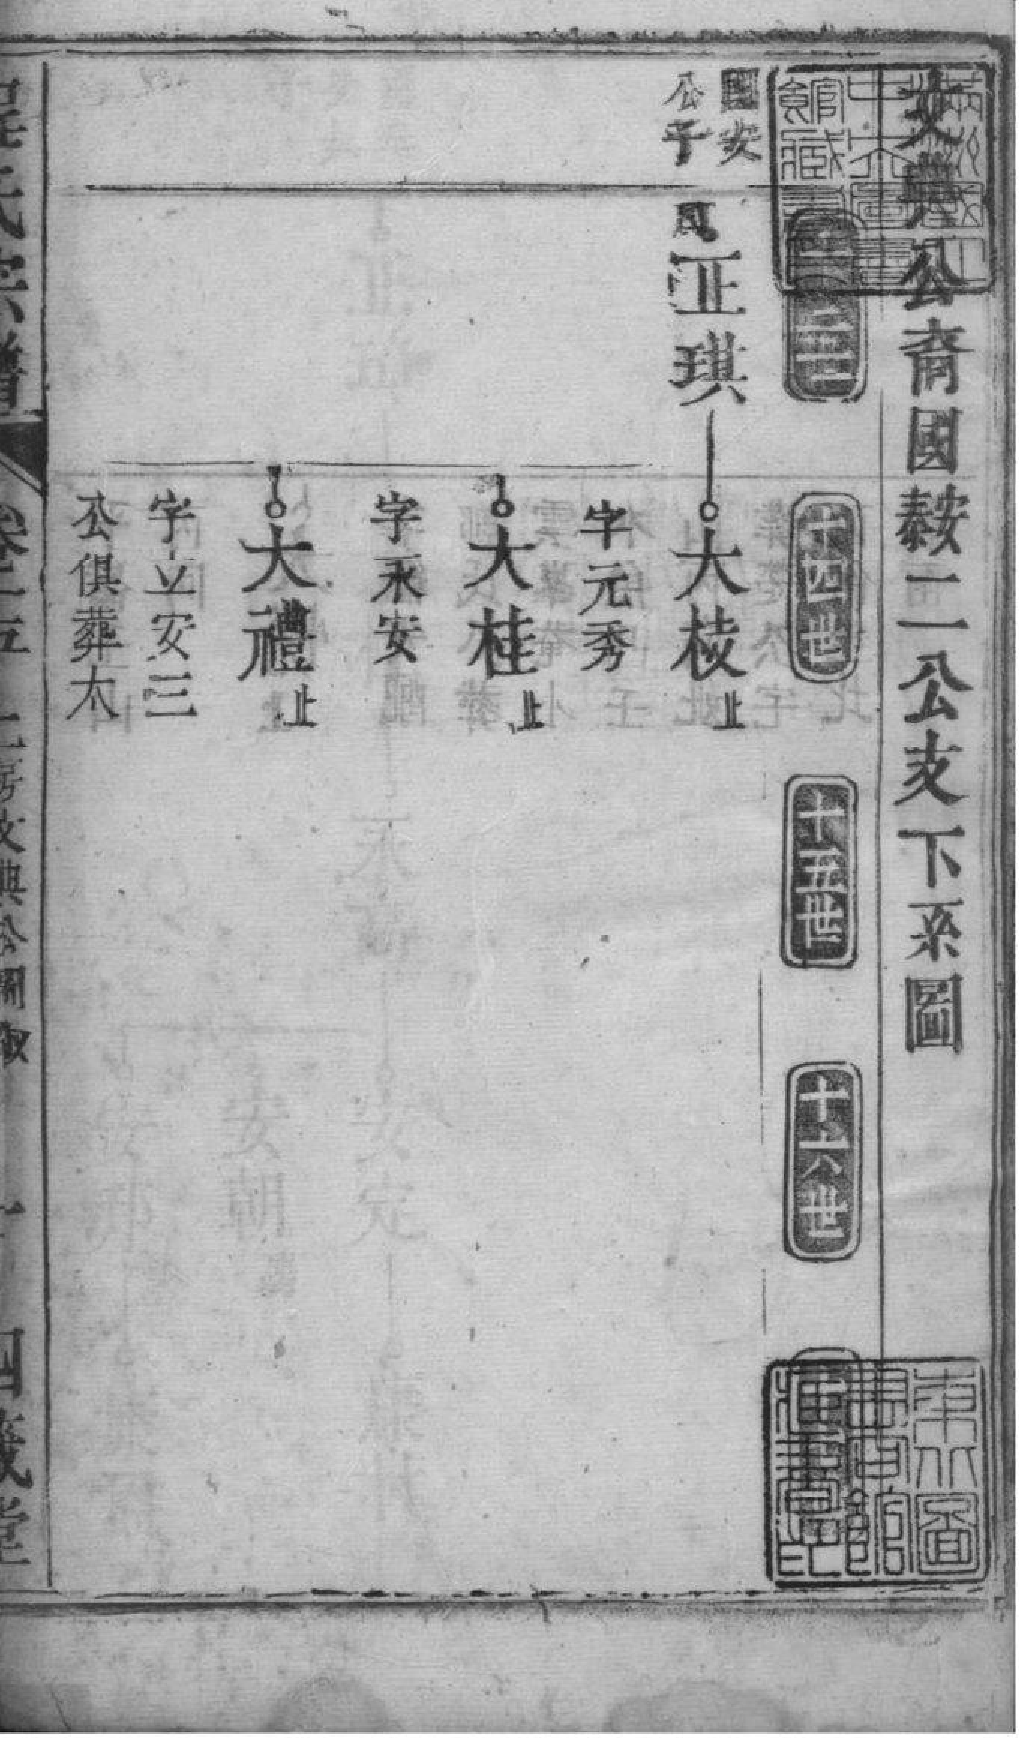 文典公裔國䅁二公支下系圖
十三世
十四世
十五世
十六世
國安
公子
正琪
大棱止
字元秀
大桂止
字永安
大禮止
字立安三
公俱葬太
氏宗譜
卷之五
二房文典公關
四箴堂